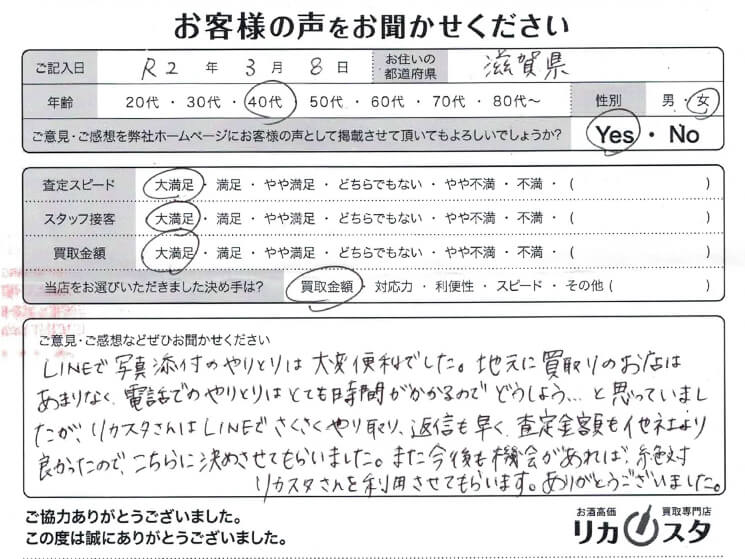 お客様の声をお聞かせください
ご記入日 R2 年 3 月 8 日 お住いの都道府県 滋賀県
年齢 20代 ・ 30代 ・ 40代 ・ 50代 ・ 60代 ・ 70代 ・ 80代〜 性別 男 ・ 女
ご意見・ご感想を弊社ホームページにお客様の声として掲載させて頂いてもよろしいでしょうか? Yes ・ No
査定スピード 大満足 ・ 満足 ・ やや満足 ・ どちらでもない ・ やや不満 ・ 不満 ・ ( )
スタッフ接客 大満足 ・ 満足 ・ やや満足 ・ どちらでもない ・ やや不満 ・ 不満 ・ ( )
買取金額 大満足 ・ 満足 ・ やや満足 ・ どちらでもない ・ やや不満 ・ 不満 ・ ( )
当店をお選びいただきました決め手は? 買取金額 ・ 対応力 ・ 利便性 ・ スピード ・ その他 ( )
ご意見・ご感想などぜひお聞かせください
LINEで写真添付のやりとりは大変便利でした。地元に買取りのお店は
あまりなく、電話でのやりとりはとても時間がかかるのでどうしよう…と思っていまし
たが、リカスタさんはLINEでさくさくやり取り、返信も早く、査定金額も他社より
良かったので、こちらに決めさせてもらいました。また今後も機会があれば、絶対
リカスタさんを利用させてもらいます。ありがとうございました。
ご協力ありがとうございました。
この度は誠にありがとうございました。
お酒高価 買取専門店
リカスタ